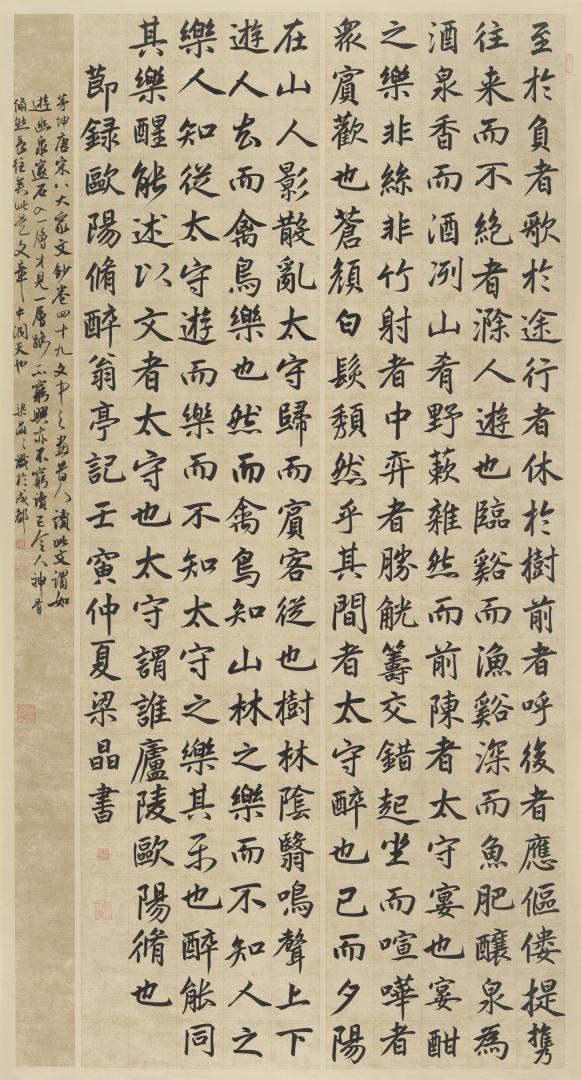 至於負者歌於途行者休於樹前者呼後者應傴僂提攜
往来而不絕者滁人遊也臨谿而漁谿深而魚肥釀泉為
酒泉香而酒洌山肴野蔌雜然而前陳者太守宴也宴酣
之樂非絲非竹射者中弈者勝觥籌交錯起坐而喧嘩者
衆賓歡也蒼顏白髮頹然乎其間者太守醉也已而夕陽
在山人影散亂太守歸而賓客從也樹林陰翳鳴聲上下
遊人去而禽鳥樂也然而禽鳥知山林之樂而不知人之
樂人知從太守遊而樂而不知太守之樂其樂也醉能同
其樂醒能述以文者太守也太守謂誰廬陵歐陽脩也
節録歐陽脩醉翁亭記壬寅仲夏梁晶書
茅坤唐宋八大家文鈔卷四十九文中之畫昔人讀此文謂如
遊幽泉邃石入一層才見一層路不窮興亦不窮讀已令人神骨
翛然長往矣此是文章中洞天也 梁晶識於成都